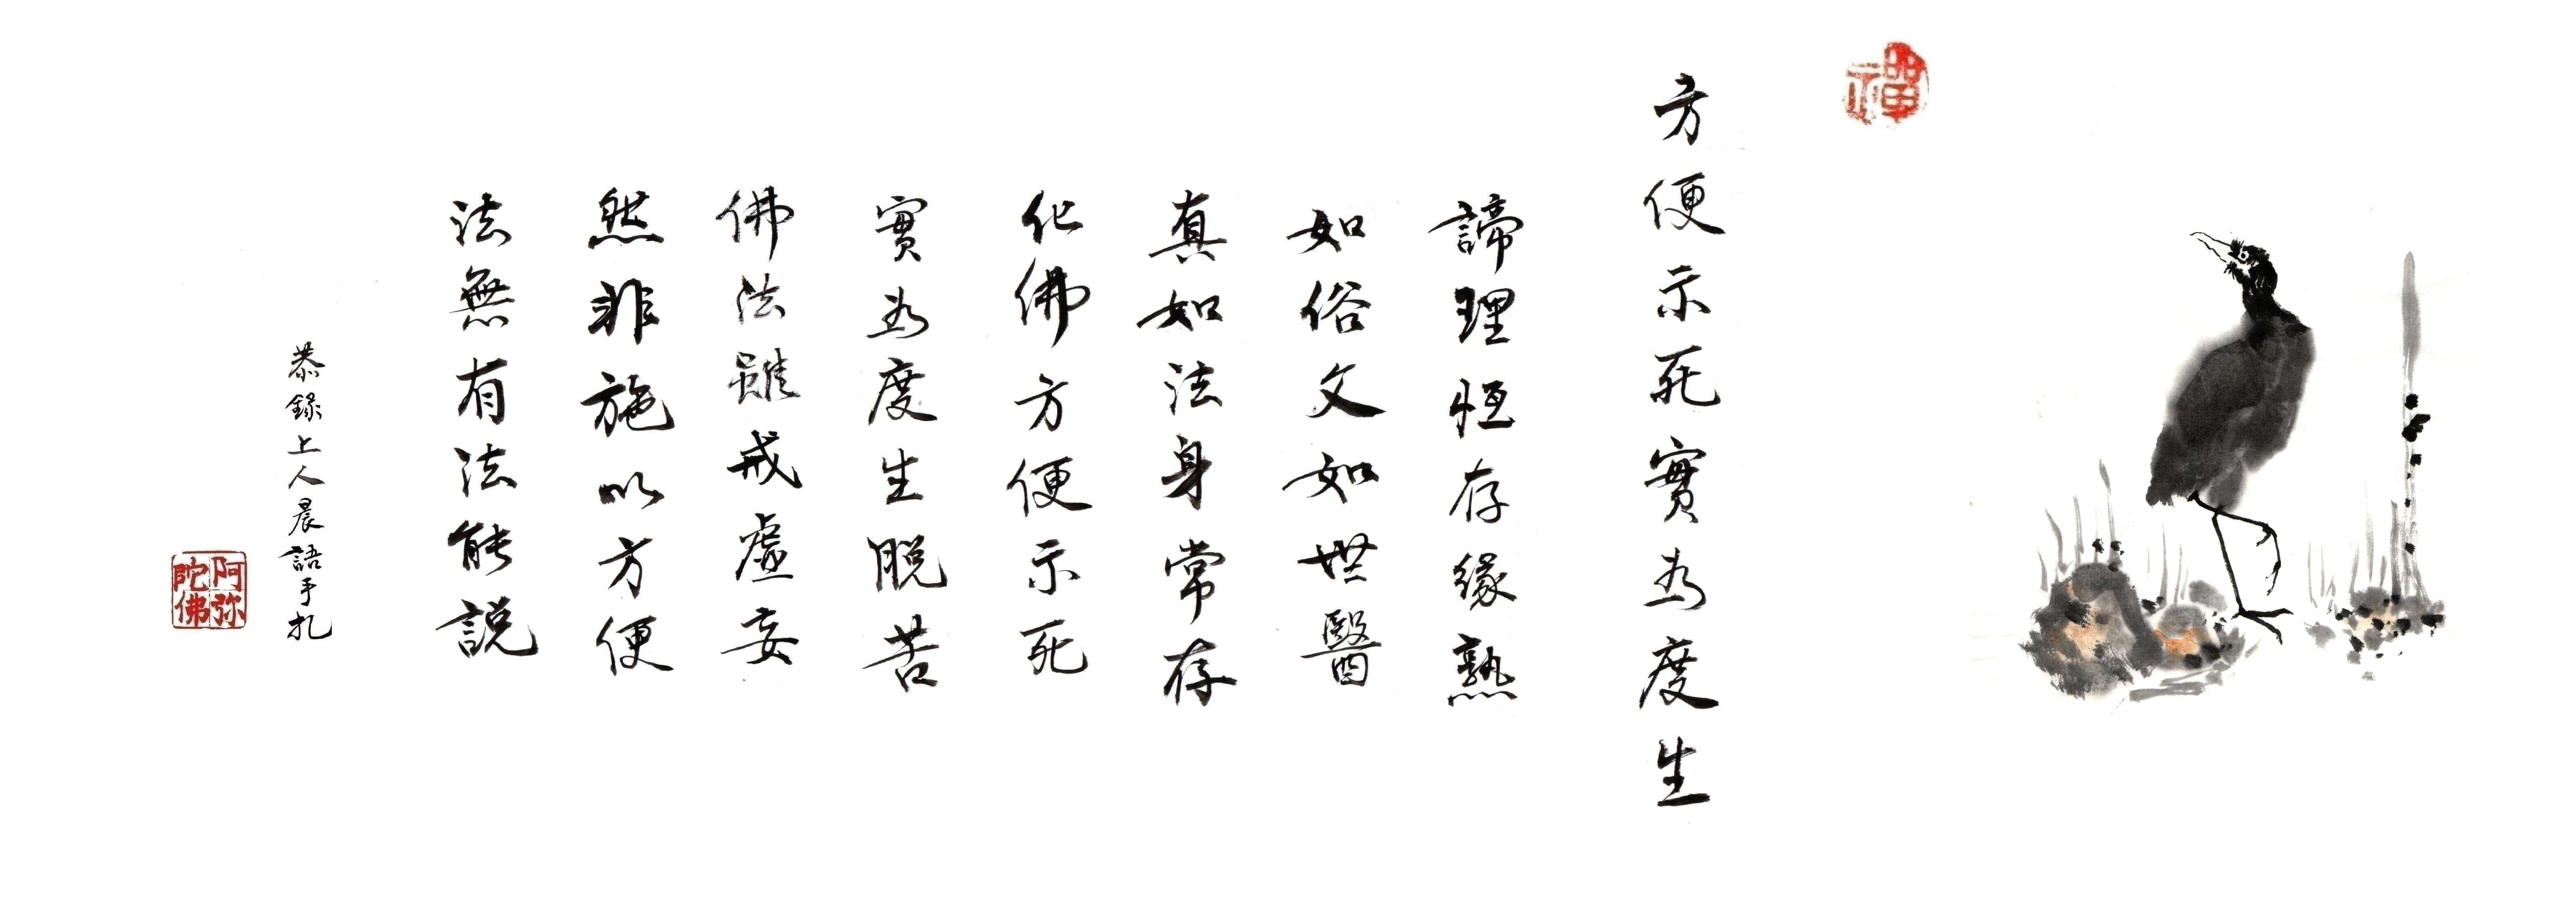 禪
方便示死實為度生
諦理恒存緣熟
如俗文如世醫
真如法身常存
化佛方便示死
實為度生脫苦
佛法雖戒虛妄
然非施以方便
法無有法能說
恭錄上人晨語手札
阿弥陀佛